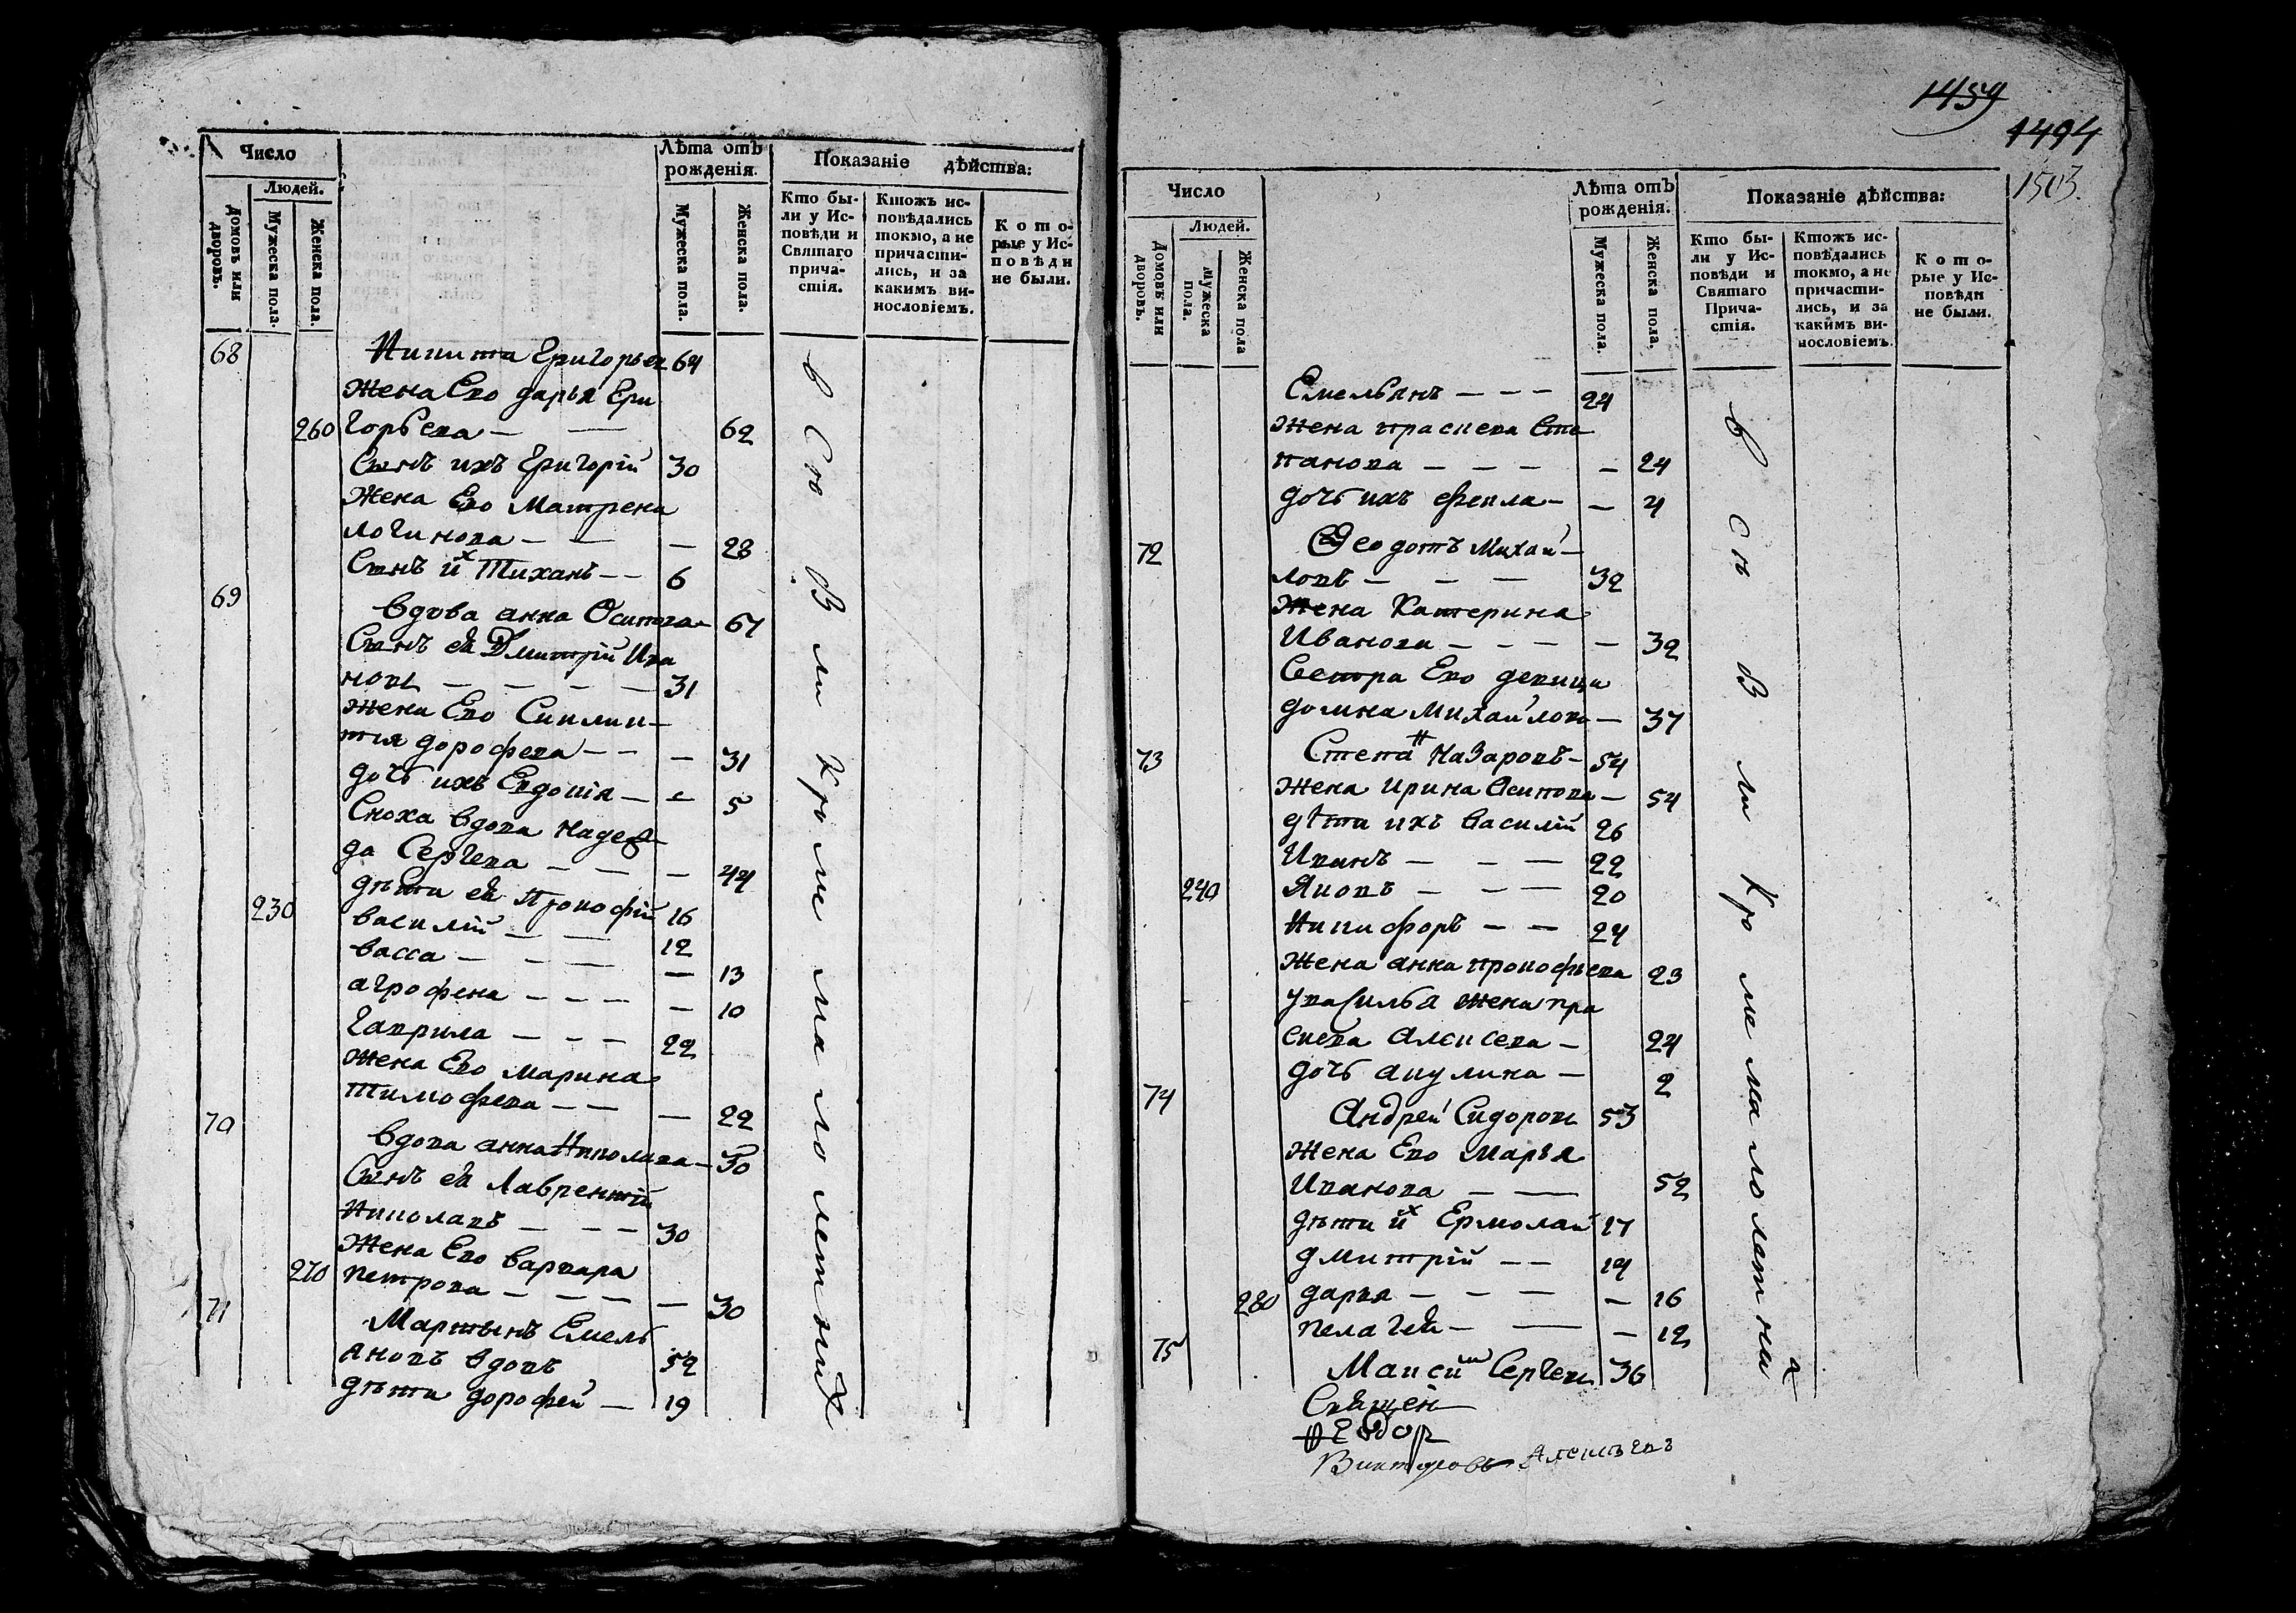 Число
Людей.
Домовъ или дворовъ.
Мужеска пола.
Женска пола.
Лѣта отъ рожденія.
Мужеска пола.
Женска пола.
Показаніе дѣйства:
Кто бы-
ли у Ис-
повѣди и
Святаго
прича-
стія.
Ктожъ ис-
повѣдались
токмо, а не
причасти-
лись, и за
какимъ ви-
нословіемъ.
Кото-
рые у Ис-
повѣди
не были.
68 Никита Григорьев 64
Жена Ево дарья Гри
260 горьева — — 62
Сынъ ихъ Григорій 30
Жена Ево Матрена
логинова — — — 28
Сынъ их Тиханъ — — 6
69
вдова анна Осипова — 67
Сынъ ей Дмитрій Ива
новъ — — — — 31
жена Ево Синкли-
тия дорофева — — — 31
дочь ихъ Евдокія — — 5
Сноха вдова надеж
да Сергева — — — 44
230 дѣти ей Прокофій 16
василій — — 12
васса — — — — 13
агрофена — — — — 10
гаврила — — — 22
жена Ево марина
тимофева — — — 22
70
вдова анна Николава — 50
Сынъ ей Лаврентій
Николавъ — — — 30
Жена Ево варвара
270 петрова — — — — 30
71 Мартынъ Емель
яновъ вдовъ 52
дѣти дорофей — 19
в сю в ли кроме малолетних
1459
1494
1503.
Число
Людей.
Домовъ или дворовъ.
Мужеска пола.
Женска пола
Лѣта отъ рожденія.
Мужеска пола.
Женска пола.
Показаніе дѣйства:
Кто бы-
ли у Ис-
повѣди и
Святаго
Прича-
стія.
Ктожъ ис-
повѣдались
токмо, а не
причасти-
лись, и за
какимъ ви-
нословіемъ.
Кото-
рые у Ис-
повѣди
не были.
Емельянъ — — — 24
жена праскева Сте
панова — — — — 24
дочь ихъ фекла — — 4
72 Феодотъ Михай —
ловъ — — — 32
Жена Катерина
Иванова — — — — 32
Сестра Ево девица
домна михайлова — 37
73 Степан Назаровъ — 54
жена ирина Осипова — 54
дѣти ихъ василій 26
Иванъ — — — 22
240 Яковъ — — — 20
Никифоръ — — 24
жена анна прокофьева 23
у василья жена пра
скева алексева — 24
дочь акулина — 2
74
Андрей Сидоровъ 53
жена Ево марья
Иванова — — 52
дѣти их Ермолай 17
дмитрій — — 14
280 дарья — — — — 16
пелагея — — — 12
75
Максим Сергевъ 36
в сю в ли кроме малолетних
Священ
Федор
Викторовъ Алексѣевъ